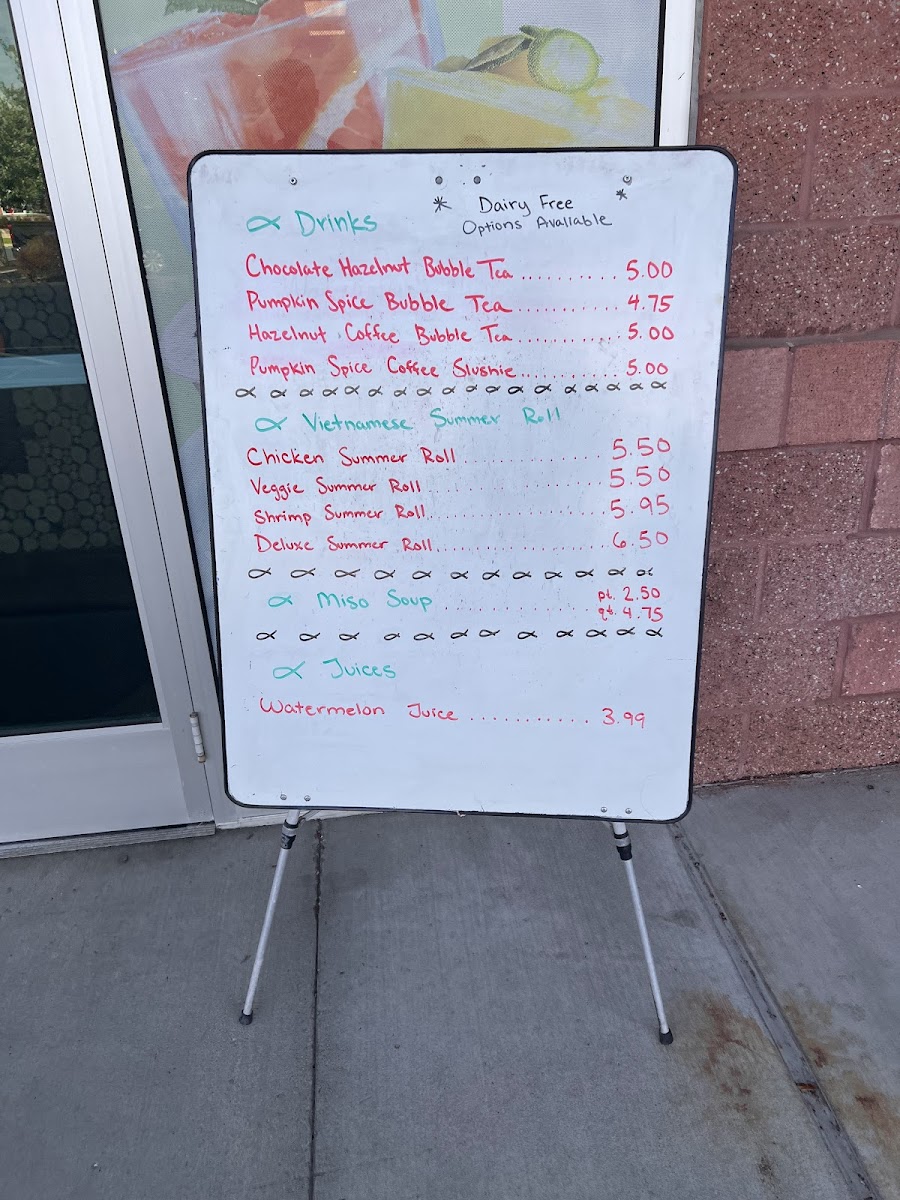 Drinks
* Dairy Free *
Options Available
Chocolate Hazelnut Bubble Tea .......... 5.00
Pumpkin Spice Bubble Tea ............ 4.75
Hazelnut Coffee Bubble Tea ............ 5.00
Pumpkin Spice Coffee Slushie ............ 5.00
Vietnamese Summer Roll
Chicken Summer Roll ............ 5.50
Veggie Summer Roll ............ 5.50
Shrimp Summer Roll ............ 5.95
Deluxe Summer Roll ............ 6.50
Miso Soup ............ pt. 2.50
qt. 4.75
Juices
Watermelon Juice ............ 3.99